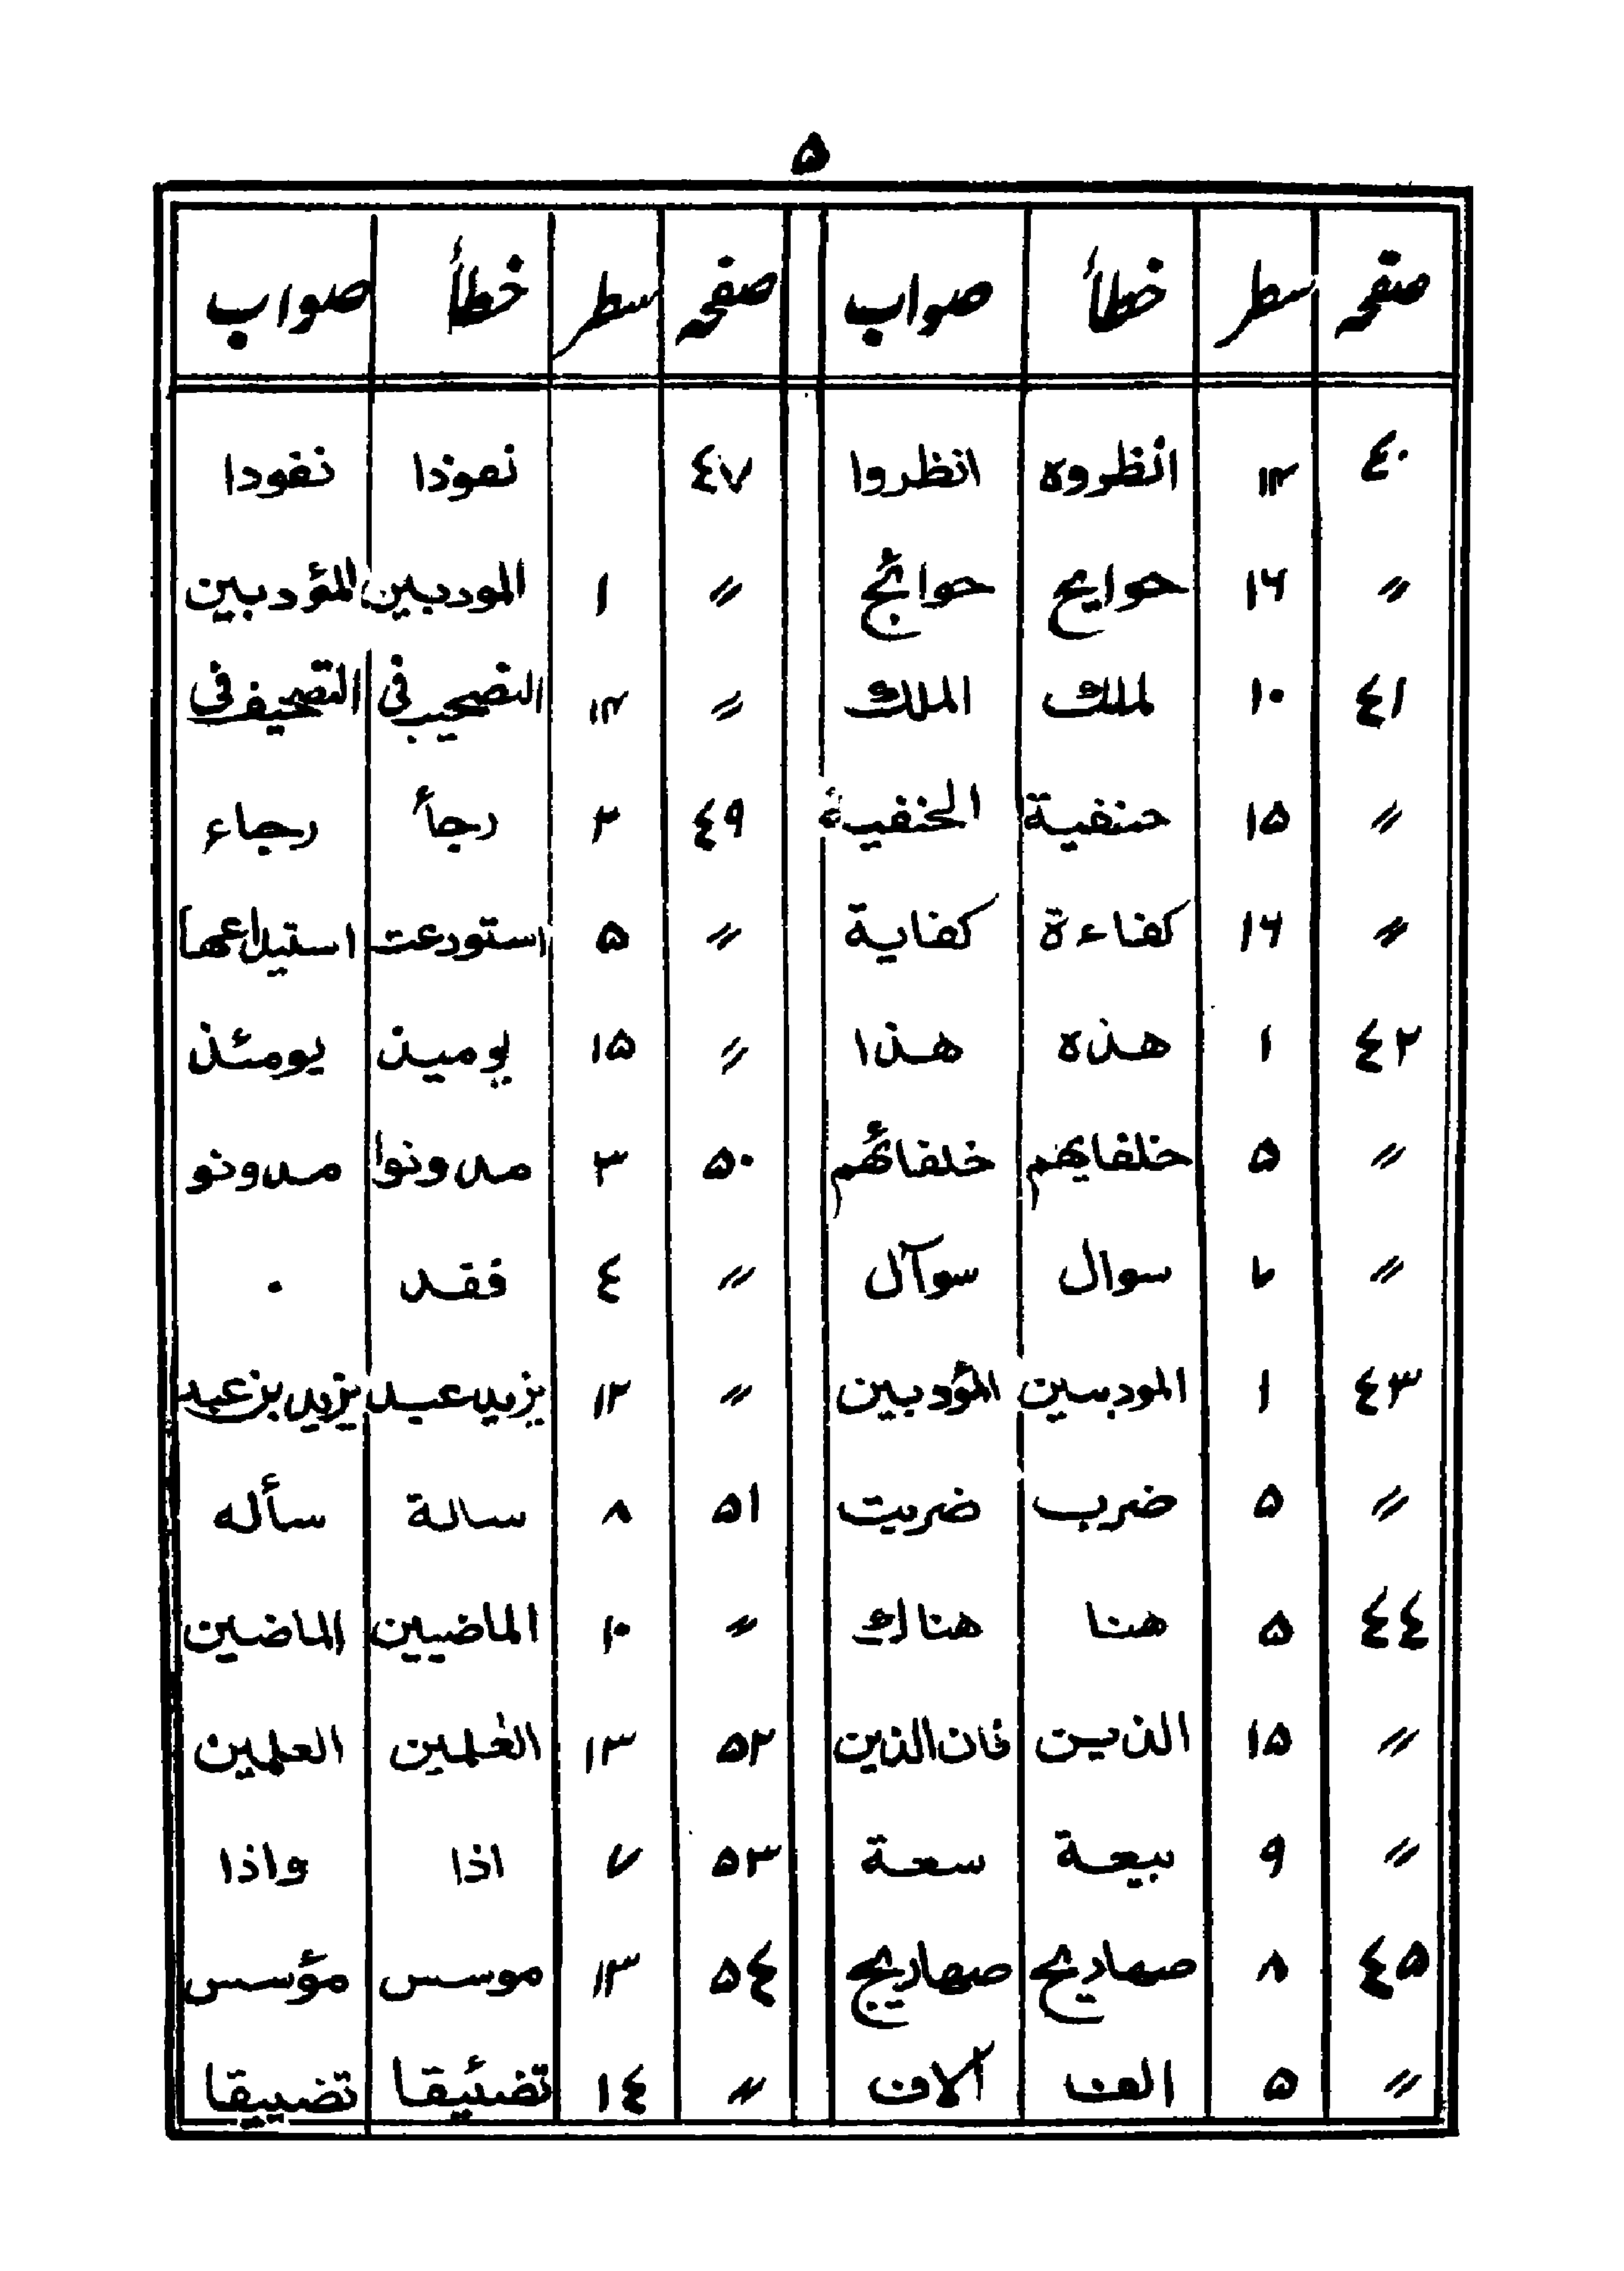 ۵
صفحہ سطر خطأ صواب صفحہ سطر خطأ صواب
٤٠ ١٣ انظروه انظروا ٤٧ نعوذا نفودا
〃 ١٦ حوايج حوائج 〃 ١ المودبين المؤدبين
٤١ ١٠ لملك الملك 〃 ١٣ التصحيف فى
〃 ١۵ حنفية الحنفية ٤٩ ٢ رجأ رجاء
〃 ١٦ كفاءة كفاية 〃 ۵ استودعت استيداعها
٤٢ ١ هذه هذا 〃 ١۵ يومين يومئذ
〃 ۵ خلفايهم خلفائهم ۵٠ ٣ مدونوا مدونو
〃 سوال سوآل 〃 ٤ فقد ٠
٤٣ ١ المودبين المؤدبين 〃 ١٢ يزيد عبد يزيد بن عبد
〃 ۵ ضرب ضربت ۵١ ٨ سالة سأله
٤٤ ۵ هنا هناك 〃 ١٠ الماضيين الماضين
〃 ١۵ الذين فان الذين ۵٢ ١٣ الغلمين العلمين
〃 ٩ بيعة سعة ۵٣ ٧ اذا واذا
٤۵ ٨ صهاديج صهاريج ۵٤ ١٣ موسس مؤسس
〃 ۵ الف آلاف 〃 ١٤ تضئيقا تضييقا